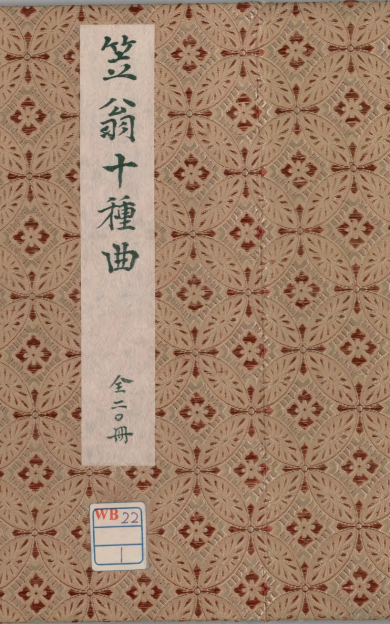 笠翁十種曲
全二〇冊
WB 22
1